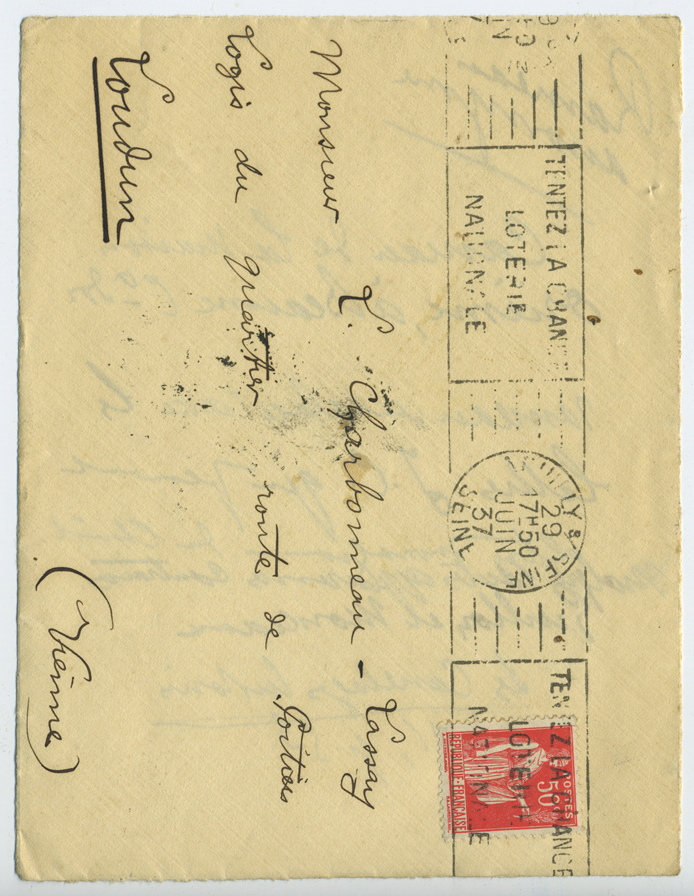 TENTEZ LA CHANCE
LOTERIE
NATIONALE
NEUILLY S. SEINE
29
17H50
JUIN
37
SEINE
TENTEZ LA CHANCE
LOTERIE
NATIONALE
POSTES
50c
REPUBLIQUE FRANÇAISE
Monsieur
L. Charbonneau-Lassay
Logis du quartier route de Poitiers
Loudun
(Vienne)